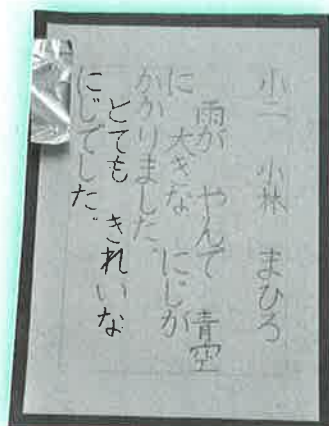 小二 小林 まひろ
雨が やんで 青空
に 大きな にじが
かかりました。
とても きれいな
にじでした。